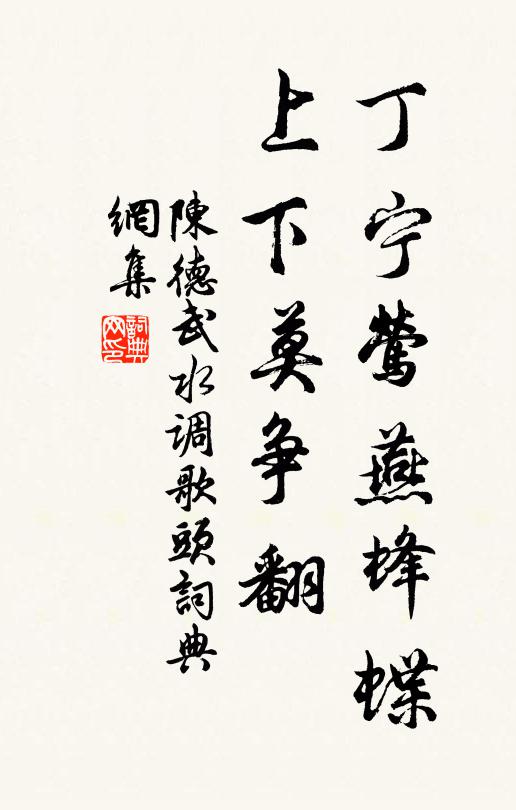 丁宁莺燕蜂蝶
上下莫争翻
陳德武水调歌頭詞典
網集
詞典
网印